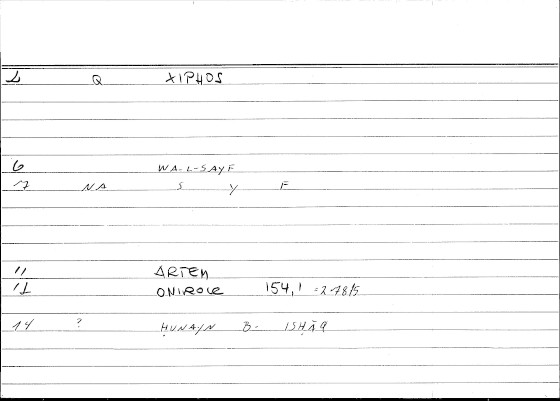 1 Q XIPHOS
6 WA-L-SAYF
17 NA S Y F
11 ARTEM
12 ONIROCR 154,1 =278/5
14 ? ḤUNAYN B- ISḤĀQ